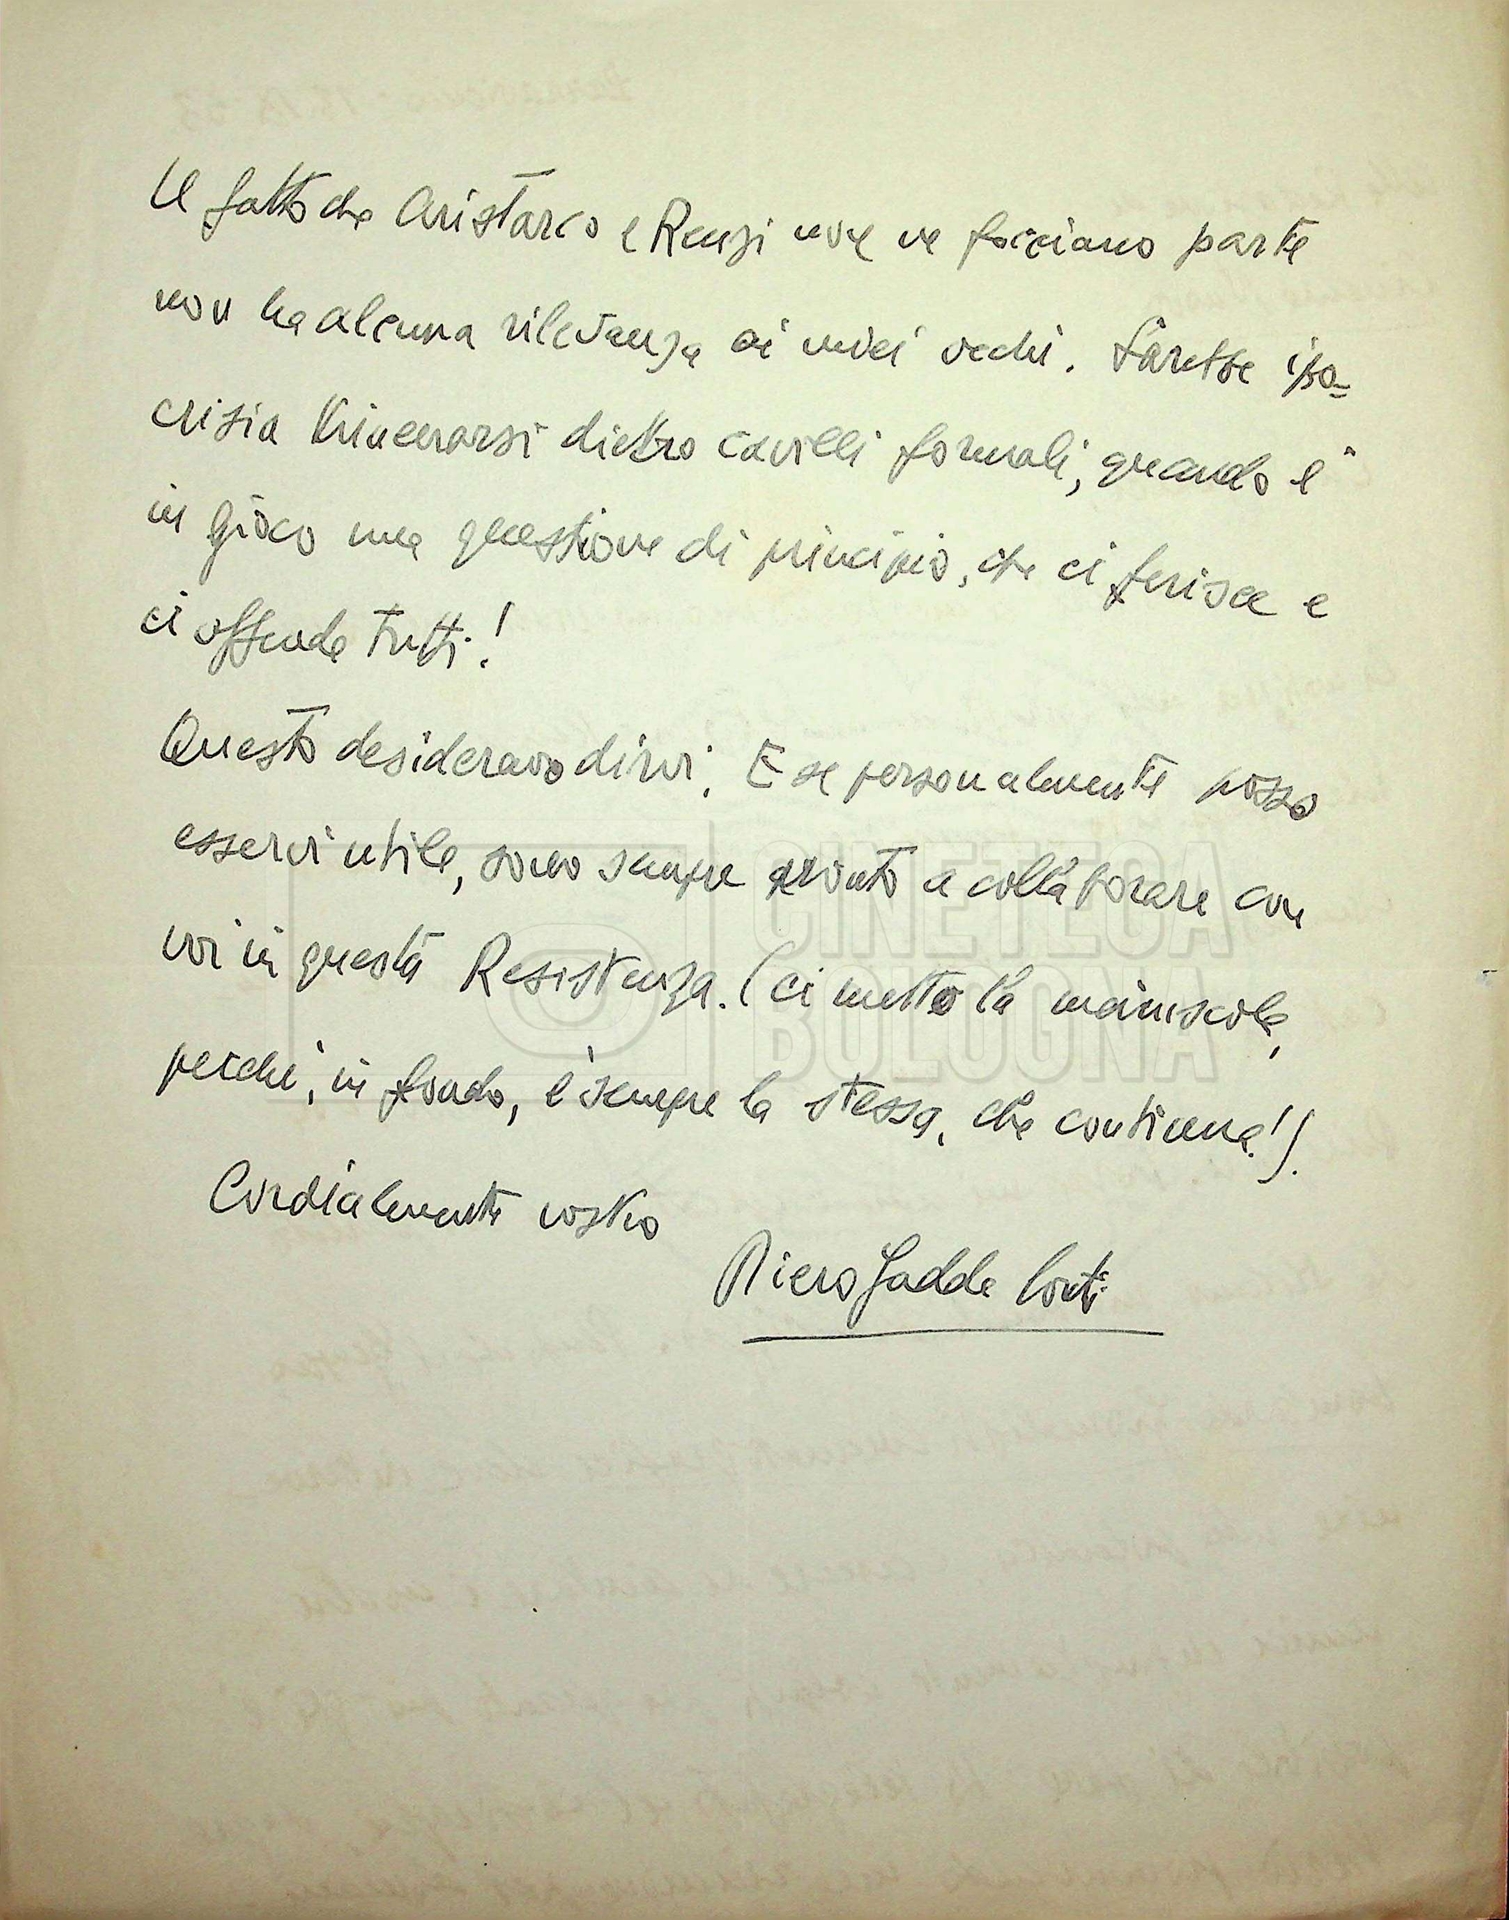 Il fatto che Aristarco e Renzi non ne facciano parte
non ha alcuna rilevanza ai miei occhi. Sarebbe ipo=
crisia trincerarsi dietro cavilli formali, quando è
in gioco una questione di principio, che ci ferisce e
ci offende tutti!
Questo desideravo dirvi. E se personalmente posso
esservi utile, sono sempre pronto a collaborare con
voi in questa Resistenza. (ci metto la maiuscola,
perché, in fondo, è sempre la stessa, che continua!).
Cordialmente vostro
Piero Gadda Conti
CINETECA
BOLOGNA